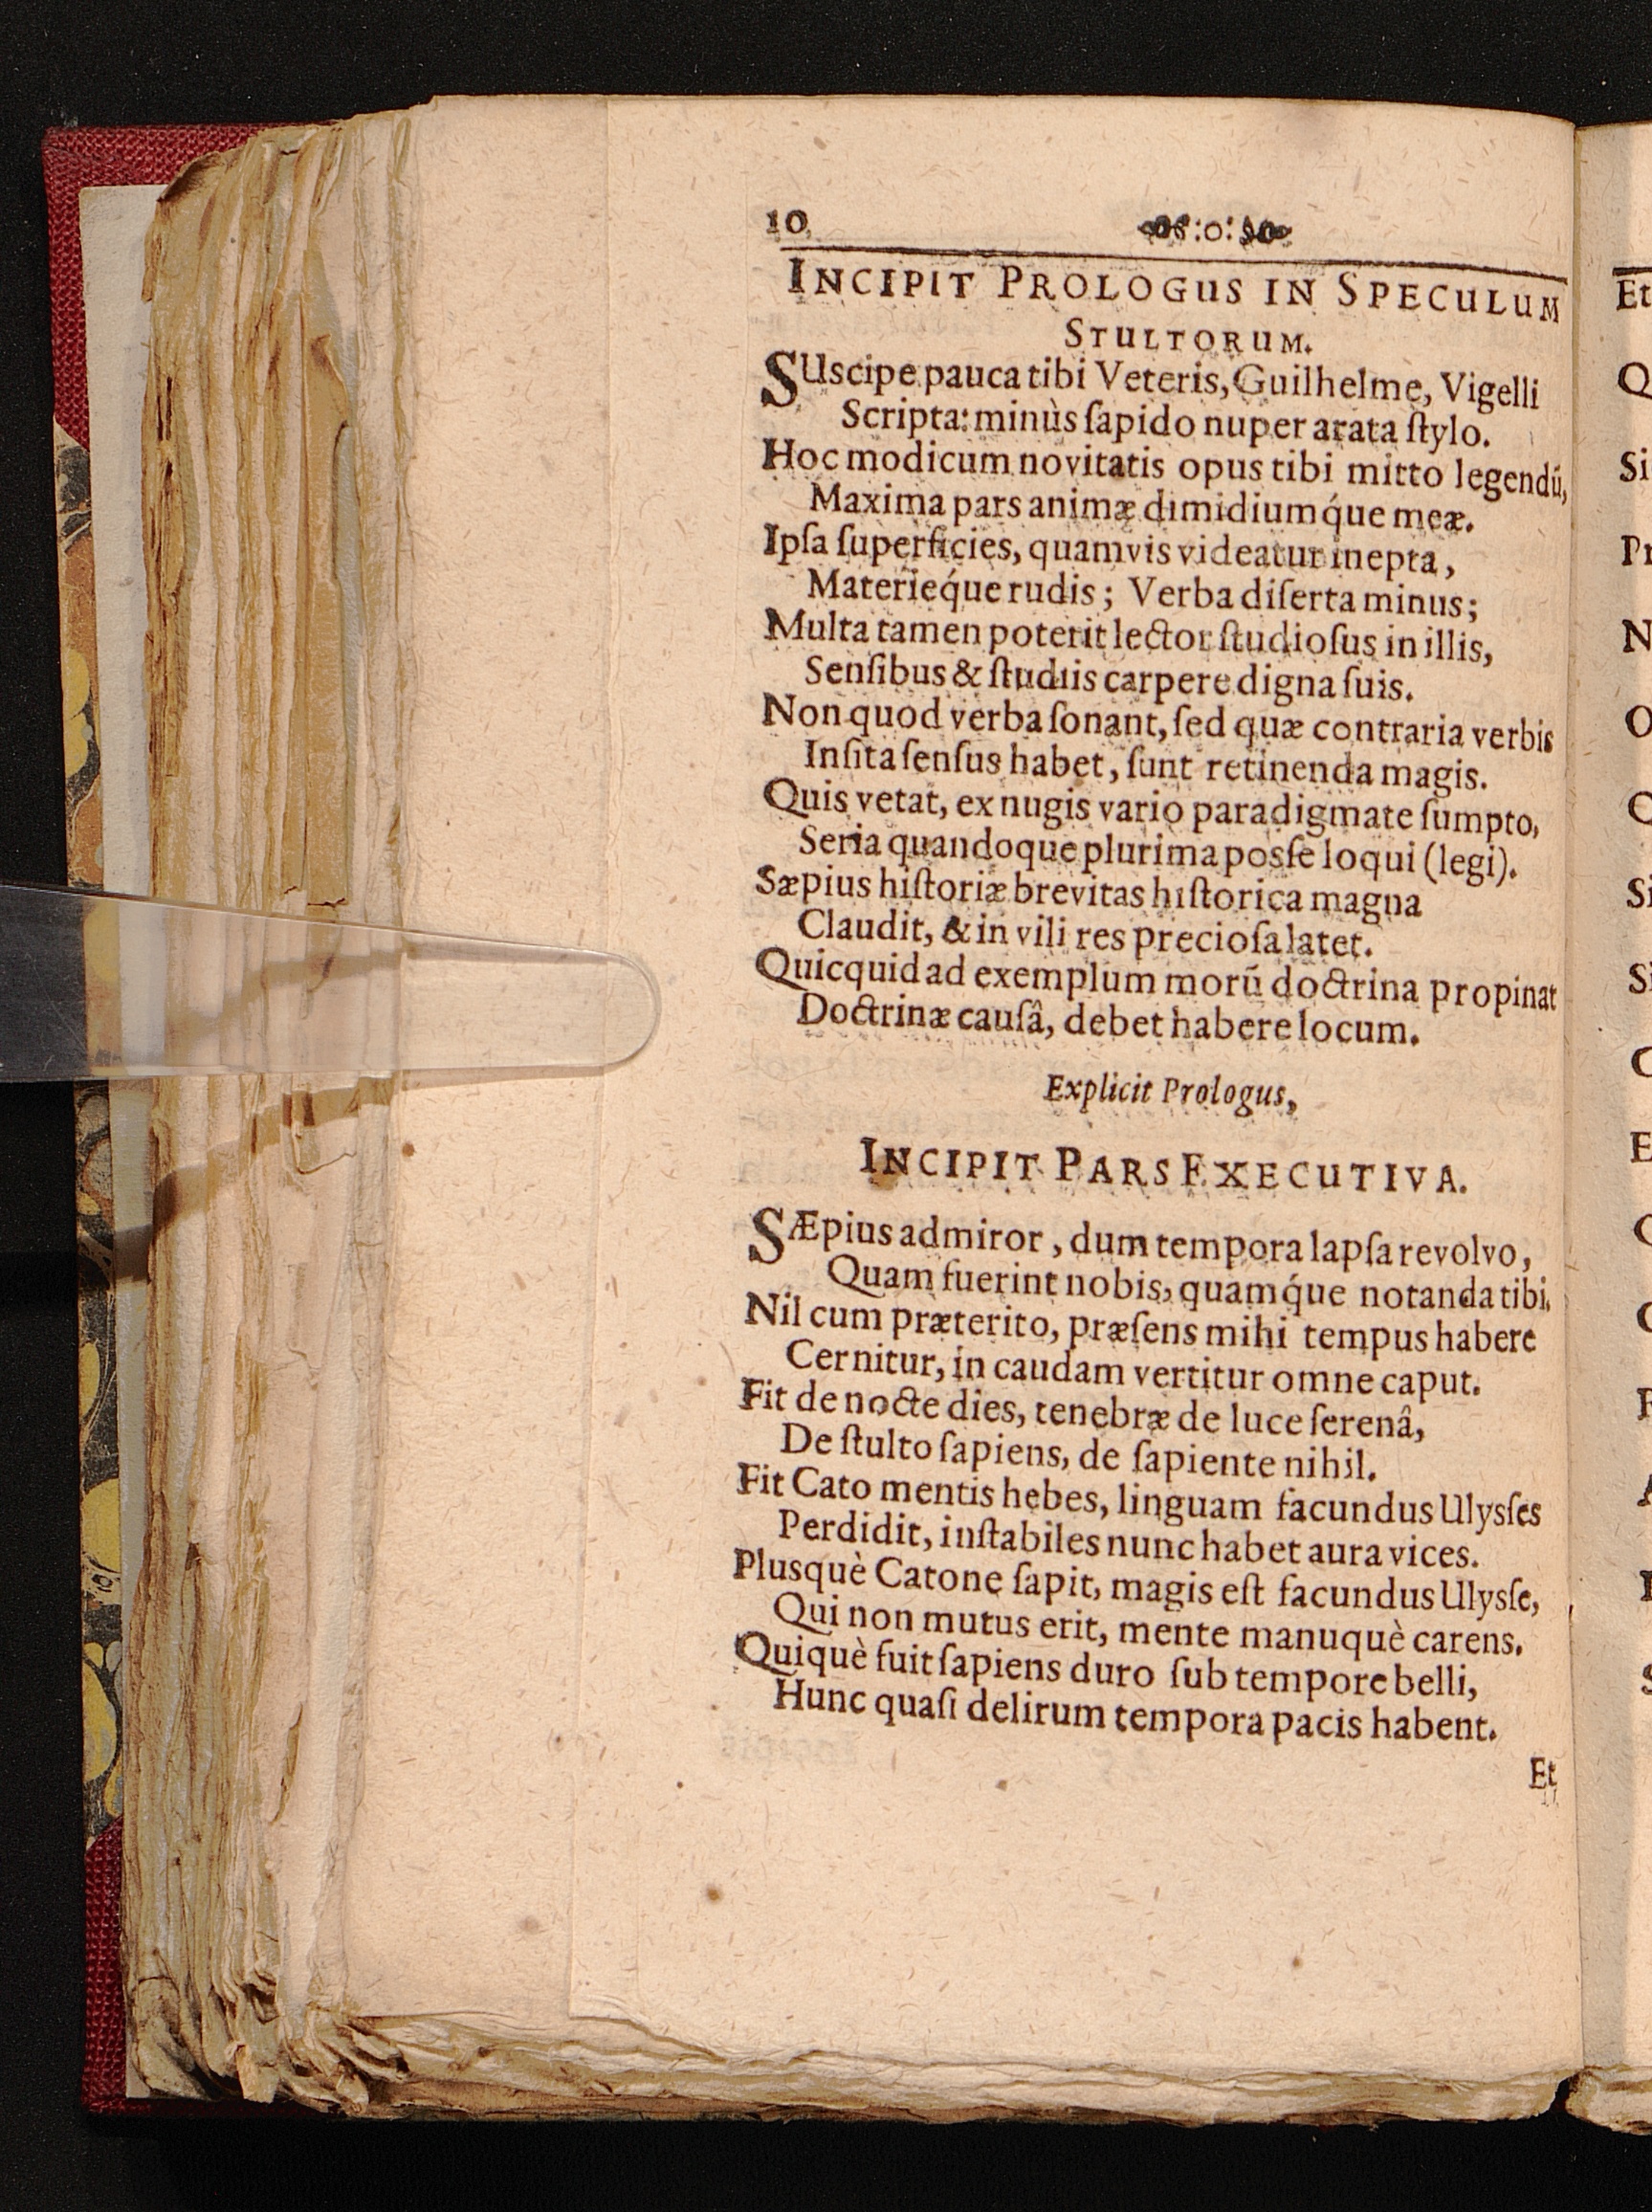 10
INCIPIT PROLOGUS IN SPECULUM
STULTORUM.
SUscipe pauca tibi Veteris, Guilhelme, Vigelli
Scripta: minùs ſapido nuper arata ſtylo.
Hoc modicum novitatis opus tibi mitto legendū,
Maxima pars animæ dimidiumq́ue meæ.
Ipſa ſuperficies, quamvis videatur inepta,
Materieq́ue rudis; Verba diſerta minus;
Multa tamen poterit lector ſtudioſus in illis,
Senſibus & ſtudiis carpere digna ſuis.
Non quod verba ſonant, ſed quæ contraria verbis
Inſita ſenſus habet, ſunt retinenda magis.
Quis vetat, ex nugis vario paradigmate ſumpto,
Seria quandoque plurima posſe loqui (legi).
Sæpius hiſtoriæ brevitas hiſtorica magna
Claudit, & in vili res precioſa latet.
Quicquid ad exemplum morū doctrina propinat
Doctrinæ cauſâ, debet habere locum.
Explicit Prologus,
INCIPIT PARS EXECUTIVA.
SÆpius admiror, dum tempora lapſa revolvo,
Quam fuerint nobis, quamq́ue notanda tibi.
Nil cum præterito, præſens mihi tempus habere
Cernitur, in caudam vertitur omne caput.
Fit de nocte dies, tenebræ de luce ſerenâ,
De ſtulto ſapiens, de ſapiente nihil.
Fit Cato mentis hebes, linguam facundus Ulysſes
Perdidit, inſtabiles nunc habet aura vices.
Plusquè Catone ſapit, magis eſt facundus Ulysſe,
Qui non mutus erit, mente manuquè carens.
Quiquè fuit ſapiens duro ſub tempore belli,
Hunc quaſi delirum tempora pacis habent.
Et